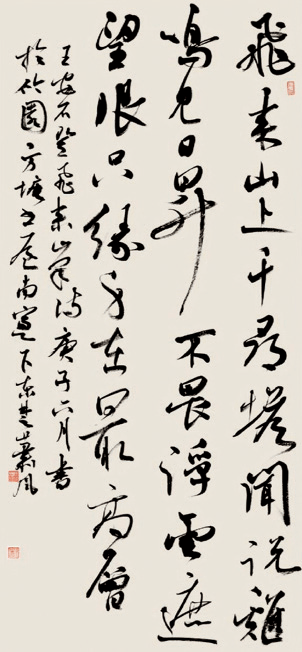 飛来山上千尋塔聞説雞
鳴見日昇不畏浮雲遮
望眼只緣身在最高層
王安石登飛来峯詩庚子六月書
於竹園方塘書屋南窗下東楚